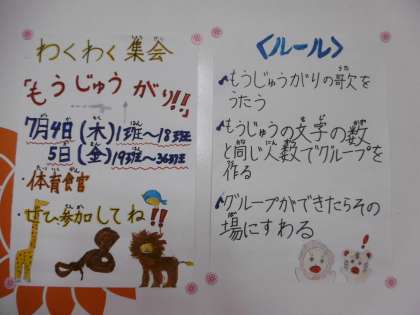 わくわく集会
「もうじゅうがり!!」
7月4日(木)1班〜18班
5日(金)19班〜36班
・体育館
・ぜひ参加してね!!
<ルール>
もうじゅうがりの歌を
うたう
もうじゅうの文字の数
と同じ人数でグループを
作る
グループができたらその
場にすわる
!